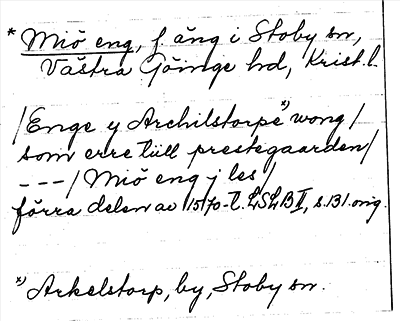 * Miö eng, f äng i Stoby sn,
Västra Göinge hd, Krist. l.
/Enge y Archilstorpe *) wong/
som erre tiill prestegaarden/
---/Miö eng j les/
förra delen av 1570-t. LSLB II, s. 131. orig.
*) Arkelstorp, by, Stoby sn.